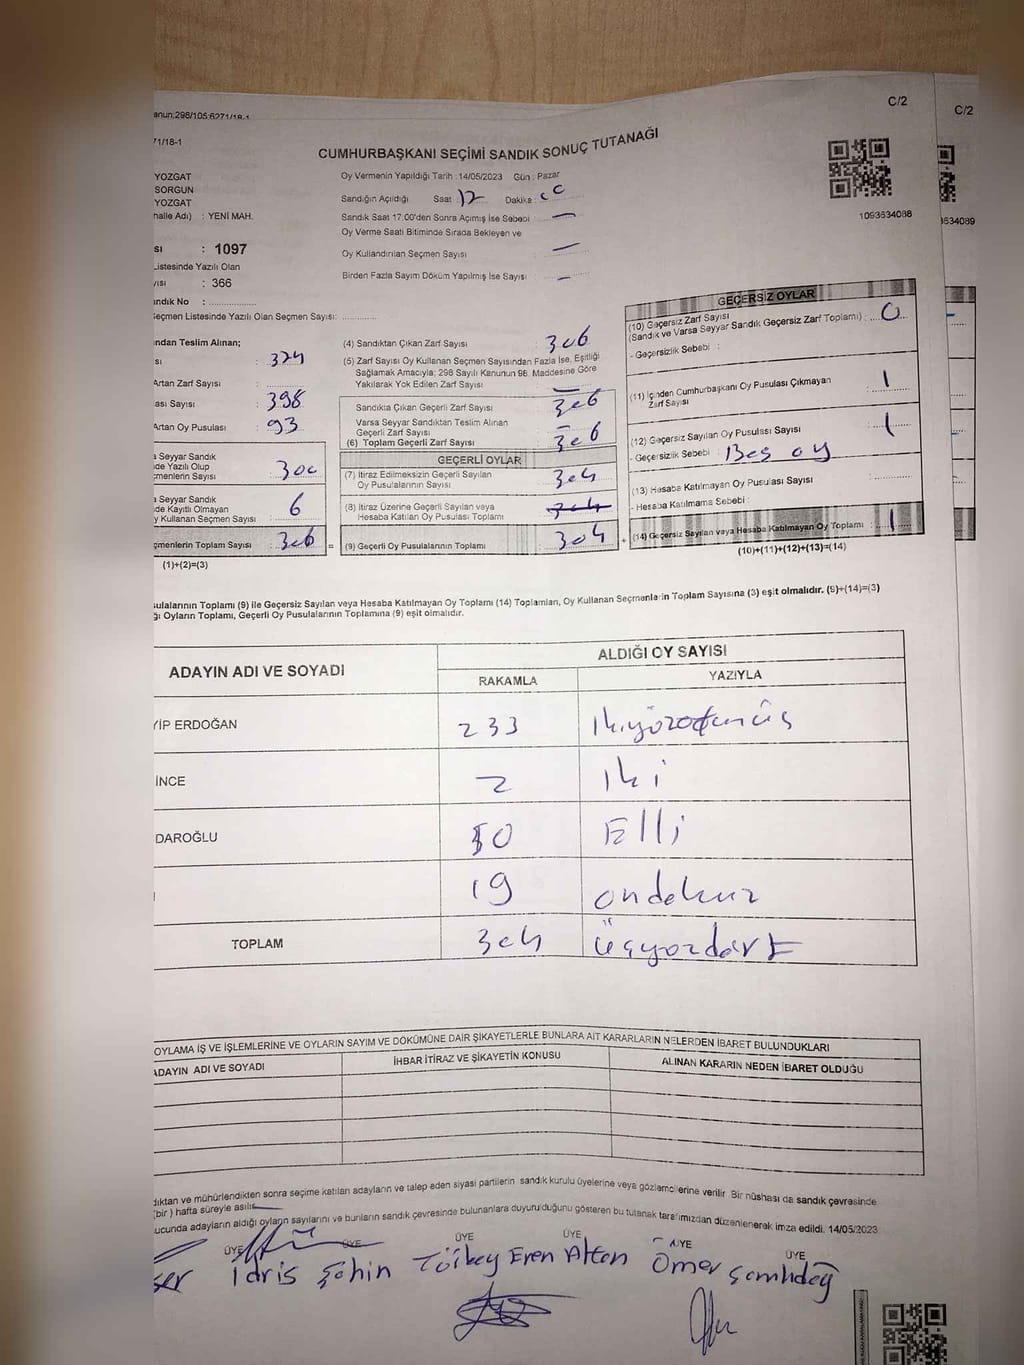 C/2
C/2
anun:298/105:6271/18-1
71/18-1
CUMHURBAŞKANI SEÇİMİ SANDIK SONUÇ TUTANAĞI
YOZGAT
SORGUN
YOZGAT
halle Adı) : YENİ MAH.
Oy Vermenin Yapıldığı Tarih : 14/05/2023 Gün : Pazar
Sandığın Açıldığı Saat : 17 Dakika :
Sandık Saat 17:00'den Sonra Açımış İse Sebebi —
Oy Verme Saati Bitiminde Sırada Bekleyen ve
Oy Kullandırılan Seçmen Sayısı —
Birden Fazla Sayım Döküm Yapılmış İse Sayısı —
1093634088
3634089
sı : 1097
Listesinde Yazılı Olan
yısı : 366
andık No :
Seçmen Listesinde Yazılı Olan Seçmen Sayısı:
ından Teslim Alınan;
sı : 374
Artan Zarf Sayısı :
ası Sayısı : 398
Artan Oy Pusulası : 93
a Seyyar Sandık
de Yazılı Olup
çmenlerin Sayısı : 300
a Seyyar Sandık
de Kayıtlı Olmayan
y Kullanan Seçmen Sayısı : 6
çmenlerin Toplam Sayısı : 306
(1)+(2)=(3)
(4) Sandıktan Çıkan Zarf Sayısı : 306
(5) Zarf Sayısı Oy Kullanan Seçmen Sayısından Fazla İse, Eşitliği
Sağlamak Amacıyla; 298 Sayılı Kanunun 98. Maddesine Göre
Yakılarak Yok Edilen Zarf Sayısı —
Sandıkta Çıkan Geçerli Zarf Sayısı : 306
Varsa Seyyar Sandıktan Teslim Alınan
Geçerli Zarf Sayısı : —
(6) Toplam Geçerli Zarf Sayısı 306
GEÇERLİ OYLAR
(7) İtiraz Edilmeksizin Geçerli Sayılan
Oy Pusulalarının Sayısı : 304
(8) İtiraz Üzerine Geçerli Sayılan veya
Hesaba Katılan Oy Pusulası Toplamı : 304
= (9) Geçerli Oy Pusulalarının Toplamı : 304 +
GEÇERSİZ OYLAR
(10) Geçersiz Zarf Sayısı
(Sandık ve Varsa Seyyar Sandık Geçersiz Zarf Toplamı) : 0
- Geçersizlik Sebebi :
(11) İçinden Cumhurbaşkanı Oy Pusulası Çıkmayan
Zarf Sayısı : 1
(12) Geçersiz Sayılan Oy Pusulası Sayısı : 1
- Geçersizlik Sebebi : Boş oy
(13) Hesaba Katılmayan Oy Pusulası Sayısı :
- Hesaba Katılmama Sebebi :
(14) Geçersiz Sayılan veya Hesaba Katılmayan Oy Toplamı : 1
(10)+(11)+(12)+(13)=(14)
sulalarının Toplamı (9) ile Geçersiz Sayılan veya Hesaba Katılmayan Oy Toplamı (14) Toplamları, Oy Kullanan Seçmenlerin Toplam Sayısına (3) eşit olmalıdır. (9)+(14)=(3)
ğı Oyların Toplamı, Geçerli Oy Pusulalarının Toplamına (9) eşit olmalıdır.
ADAYIN ADI VE SOYADI
ALDIĞI OY SAYISI
RAKAMLA YAZIYLA
YİP ERDOĞAN 233
İNCE 2 iki
DAROĞLU 50 Elli
19 ondokuz
TOPLAM 304 üçyüzdört
OYLAMA İŞ VE İŞLEMLERİNE VE OYLARIN SAYIM VE DÖKÜMÜNE DAİR ŞİKAYETLERLE BUNLARA AİT KARARLARIN NELERDEN İBARET BULUNDUKLARI
ADAYIN ADI VE SOYADI İHBAR İTİRAZ VE ŞİKAYETİN KONUSU ALINAN KARARIN NEDEN İBARET OLDUĞU
dıktan ve mühürlendikten sonra seçime katılan adayların ve talep eden siyasi partilerin sandık kurulu üyelerine veya gözlemcilerine verilir. Bir nüshası da sandık çevresinde
(bir ) hafta süreyle asılır.
ucunda adayların aldığı oyların sayılarını ve bunların sandık çevresinde bulunanlara duyurulduğunu gösteren bu tutanak tarafımızdan düzenlenerek imza edildi. 14/05/2023
ÜYE ÜYE ÜYE ÜYE ÜYE ÜYE
İdris Şahin Eren Altan Ömer